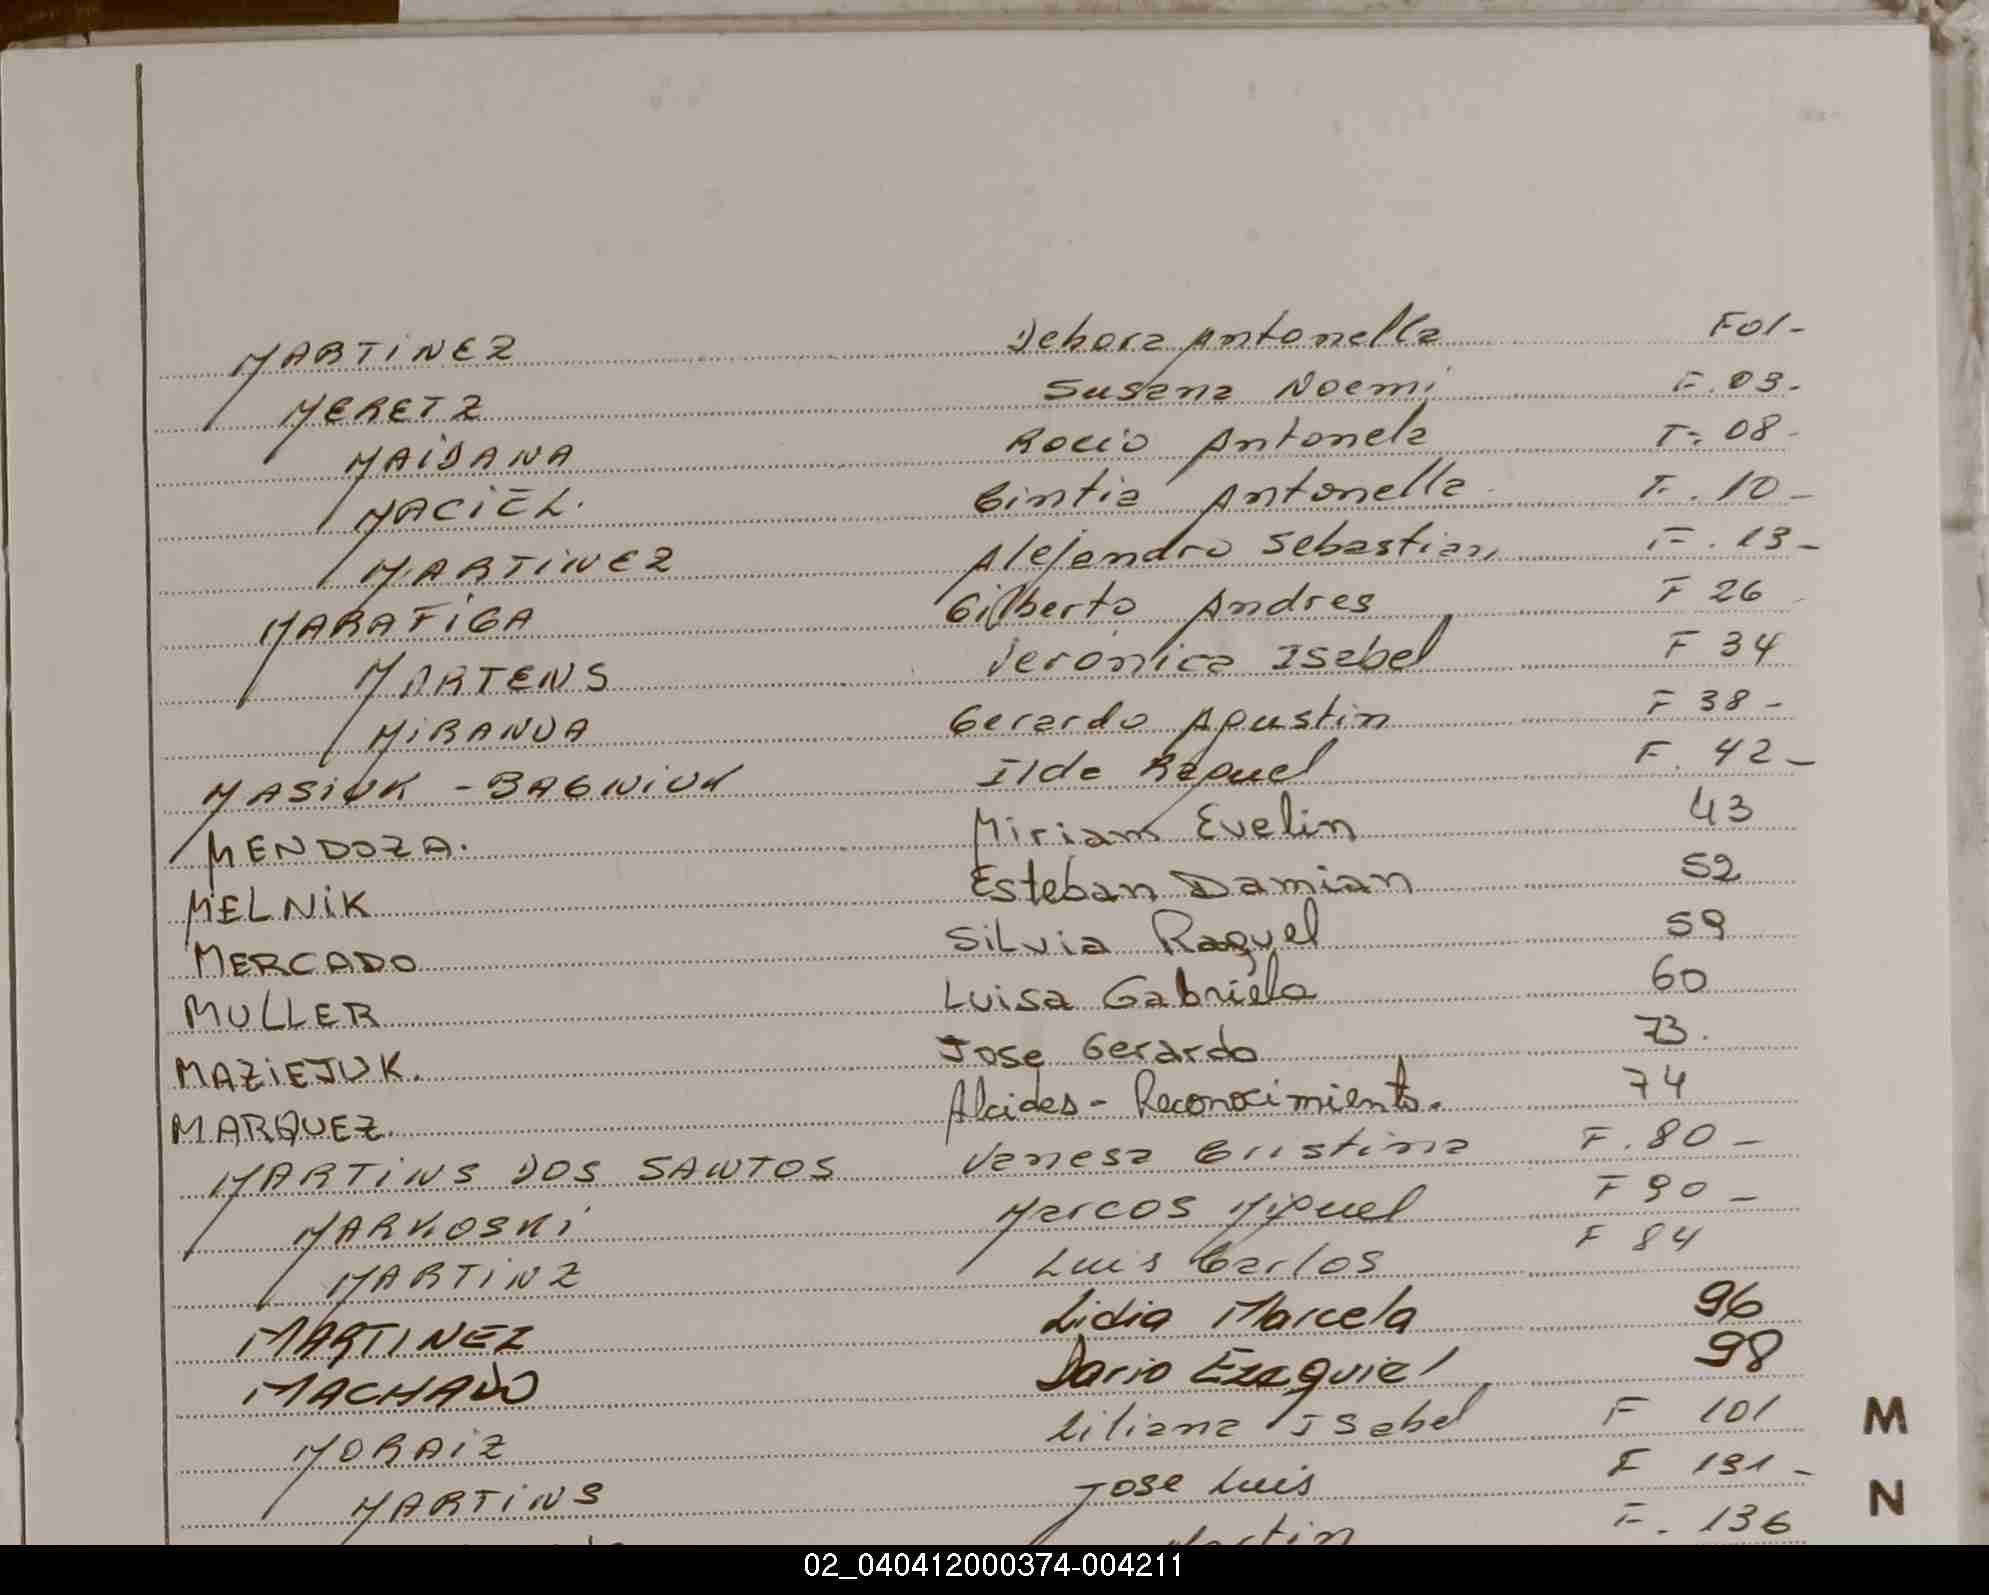 MARTINEZ Debora Antonella F01-
MERETZ Susana Noemi F. 03-
MAIDANA Rocio Antonela F. 08-
MACIEL. Cintia Antonella F. 10-
MARTINEZ Alejandro Sebastian F. 13-
MARAFIGA Gilberto Andres F 26
MARTENS Veronica Isabel F 34
MIRANDA Gerardo Agustin F 38-
MASIUK - BAGNIUK Ilda Raquel F. 42-
MENDOZA. Miriam Evelin 43
MELNIK Esteban Damian 52
MERCADO Silvia Raquel 59
MULLER Luisa Gabriela 60
MAZIEJUK. Jose Gerardo 73.
MARQUEZ. Alcides - Reconocimiento. 74
MARTINS DOS SANTOS Vanesa Cristina F. 80-
MARKOSKI Marcos Miguel F 90-
MARTINZ Luis Carlos F 84
MARTINEZ Lidia Marcela 96
MACHADO Dario Ezequiel 98
MORAIZ Liliana Isabel F 101
MARTINS Jose Luis F 131-
F. 136
M
N
02_040412000374-004211